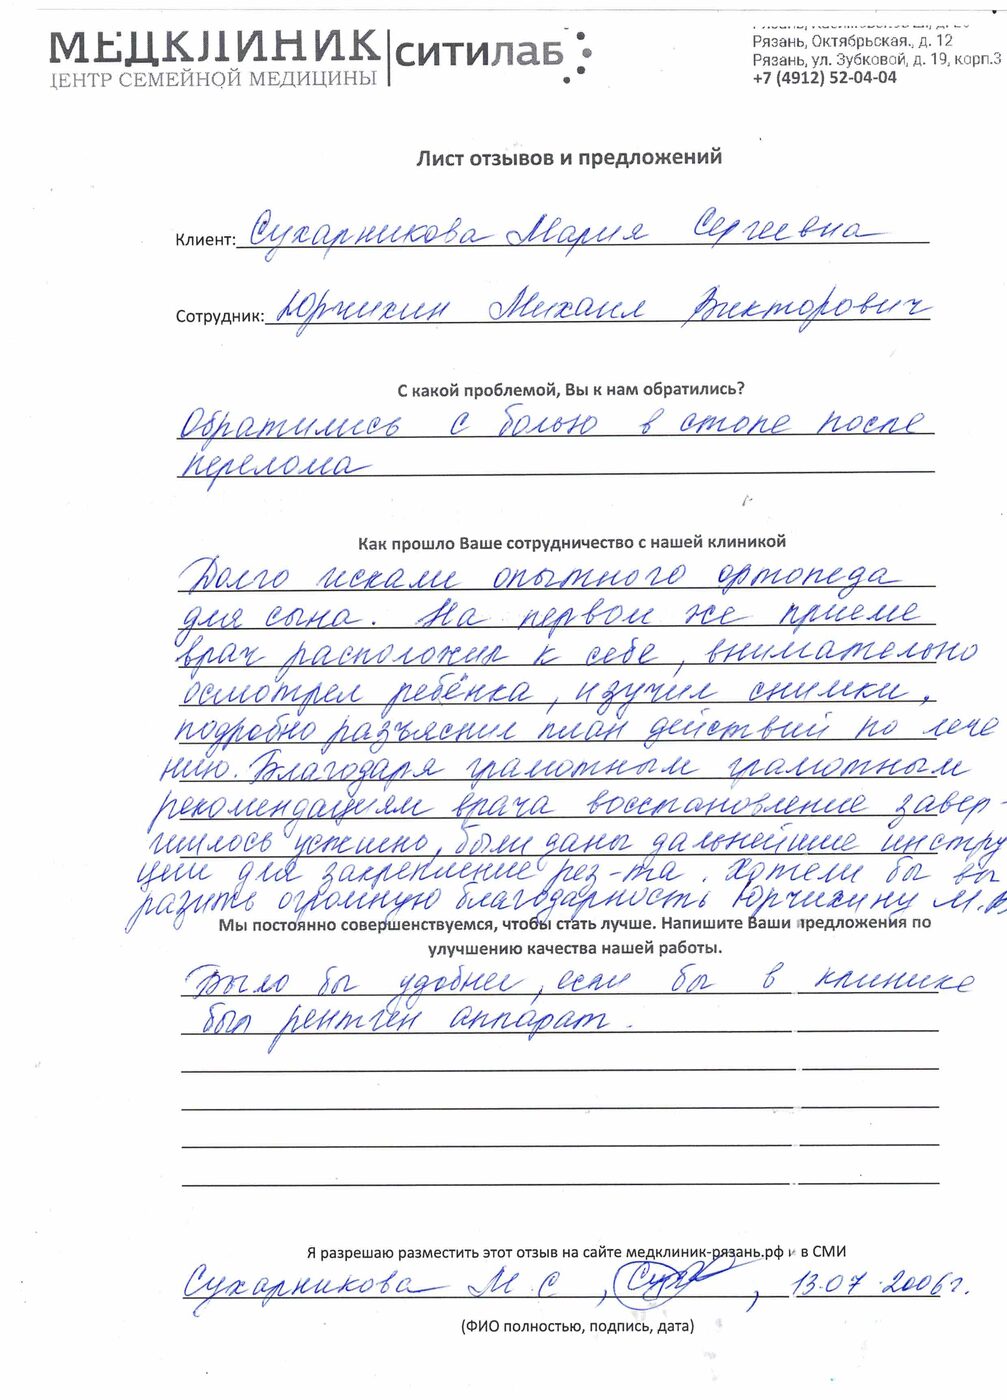 МЕДКЛИНИК СИТИЛАБ
ЦЕНТР СЕМЕЙНОЙ МЕДИЦИНЫ
Рязань, Октябрьская., д. 12
Рязань, ул. Зубковой, д. 19, корп.3
+7 (4912) 52-04-04
Лист отзывов и предложений
Клиент: Сухарникова Мария Сергеевна
Сотрудник: Юрчихин Михаил Викторович
С какой проблемой, Вы к нам обратились?
Обратились с болью в стопе после
перелома
Как прошло Ваше сотрудничество с нашей клиникой
Долго искали опытного ортопеда
для сына. На первом же приеме
врач расположил к себе, внимательно
осмотрел ребёнка, изучил снимки,
подробно разъяснил план действий по лече
нию. Благодаря грамотным грамотным
рекомендациям врача восстановление завер-
шилось успешно, были даны дальнейшие инстру
ции для закрепление рез-та. Хотели бы вы
разить огромную благодарность Юрчихину М.В
Мы постоянно совершенствуемся, чтобы стать лучше. Напишите Ваши предложения по
улучшению качества нашей работы.
Было бы удобнее, если бы в клинике
был рентген аппарат.
Я разрешаю разместить этот отзыв на сайте медклиник-рязань.рф и в СМИ
Сухарникова М.С , , 13.07.2006г.
(ФИО полностью, подпись, дата)